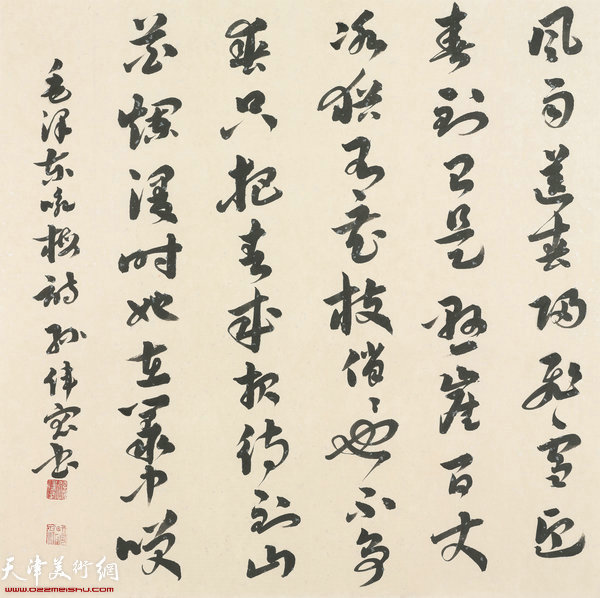 风雨送春归飞雪迎
春到已是悬崖百丈
冰犹有花枝俏々也不争
春只把春来报待到山
花烂漫时她在丛中咲
毛泽东咏梅诗 孙伟 书
天津美術網
www.022meishu.com